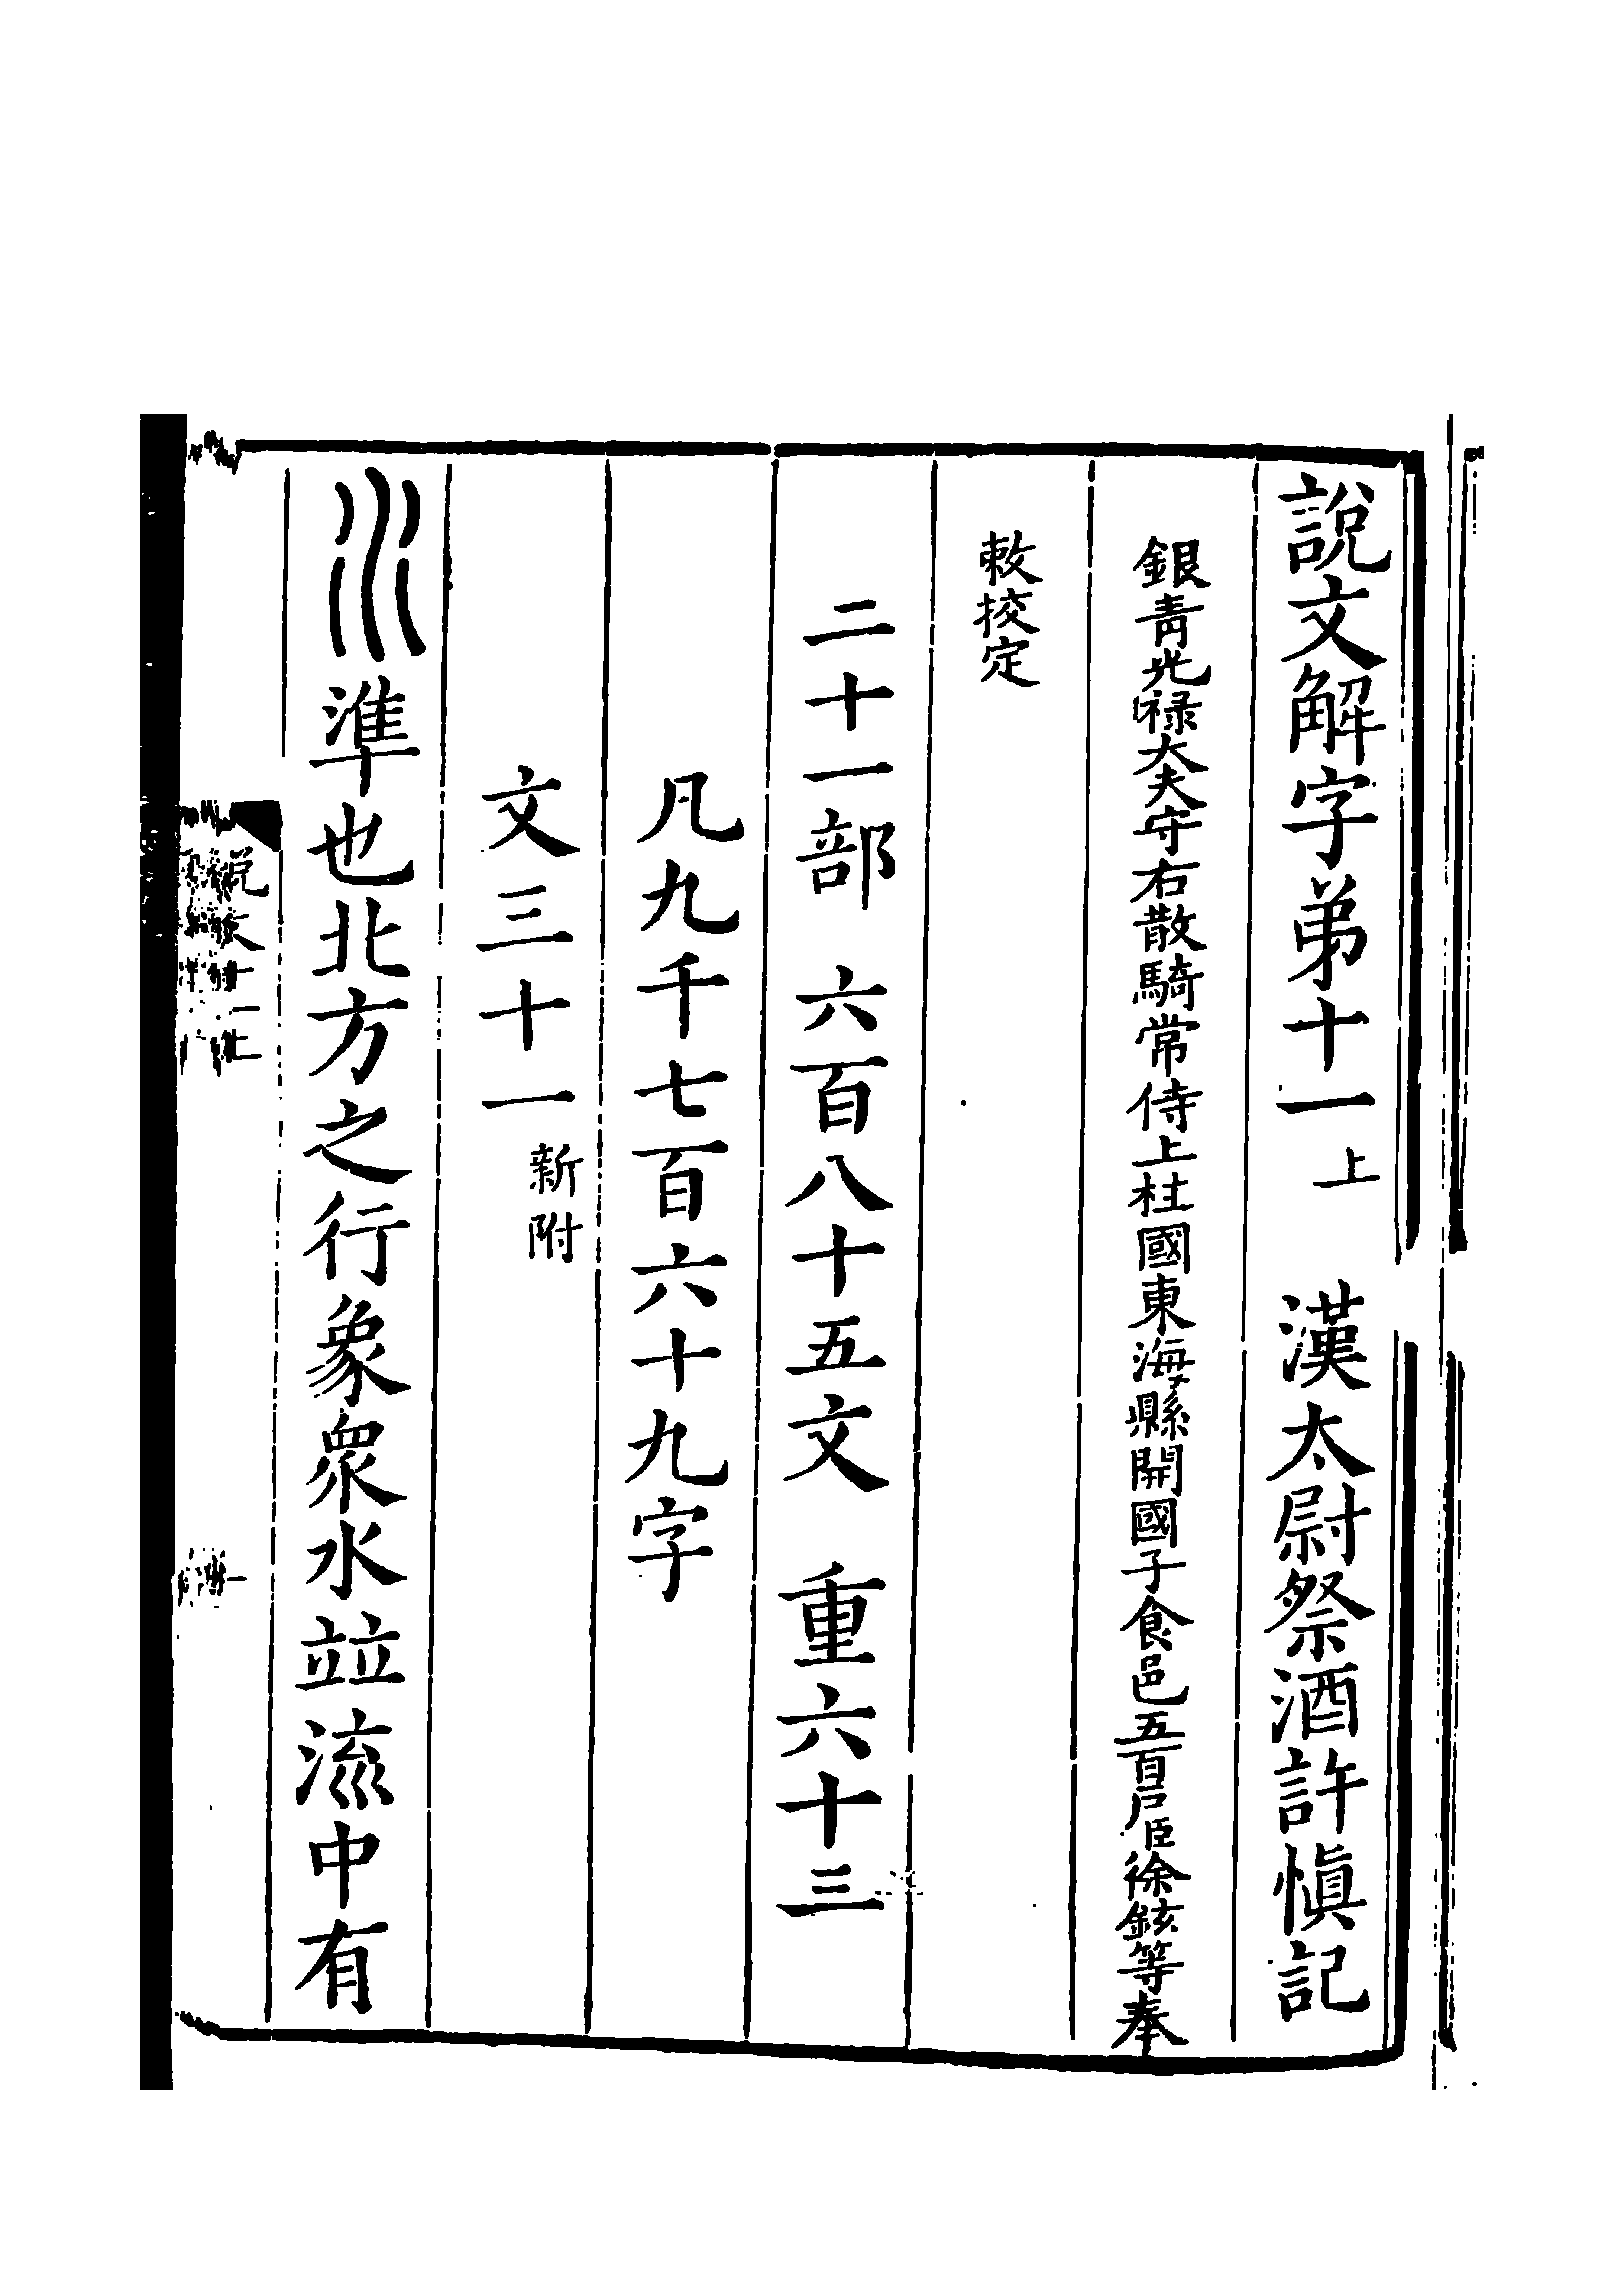 說文解字弟十一上　漢太尉祭酒許慎記
銀青光祿大夫守右散騎常侍上柱國東海縣開國子食邑五百戶臣徐鉉等奉
敕挍定
二十一部　六百八十五文　重六十三
凡九千七百六十九字
文三十一新附
水準也北方之行象眾水竝流中有